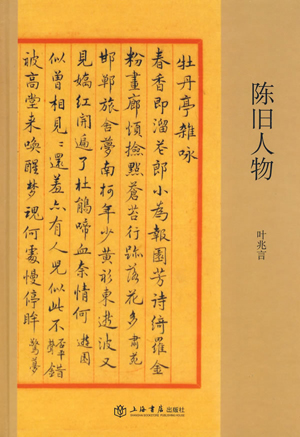 陈旧人物
叶兆言
牡丹亭雜咏
春香即溜小為報園芳詩綺羅金
粉畫廊煩撿點蒼苔行跡落花多 肅苑
邯鄲旅舍夢南柯年少黃衫東逝波又
見嫣紅開遍了杜鵑啼血奈情何 遊園
似曾相見還羞有人兒似此不 錯
被高堂来喚醒梦魂何處慢停眸 驚夢
上海书店出版社